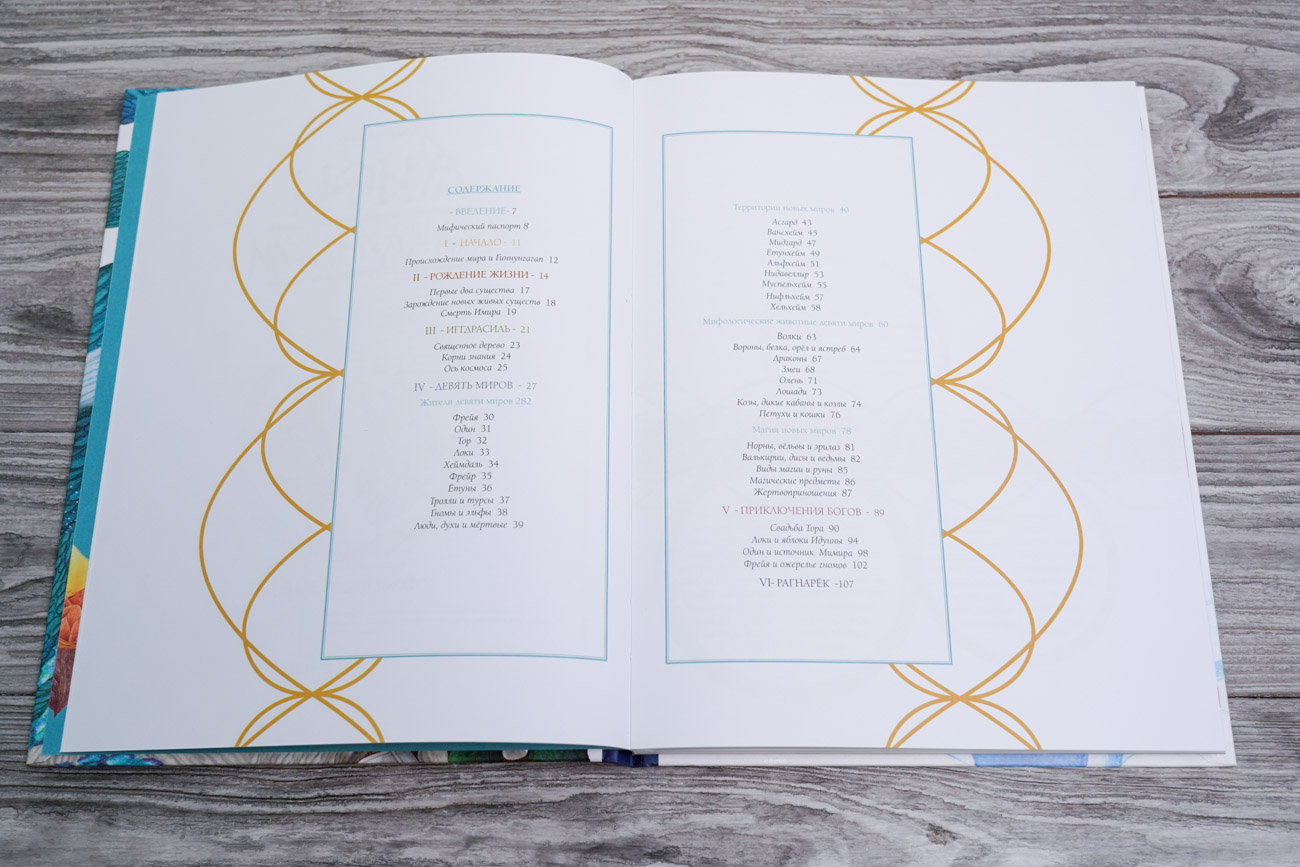 СОДЕРЖАНИЕ
- ВВЕДЕНИЕ- 7
Мифический паспорт 8
I - НАЧАЛО - 11
Происхождение мира и Гиннунгагап 12
II - РОЖДЕНИЕ ЖИЗНИ - 14
Первые два существа 17
Зарождение новых живых существ 18
Смерть Имира 19
III - ИГГДРАСИЛЬ - 21
Священное дерево 23
Корни знания 24
Ось космоса 25
IV - ДЕВЯТЬ МИРОВ - 27
Жители девяти миров 282
Фрейя 30
Один 31
Тор 32
Локи 33
Хеймдаль 34
Фрейр 35
Ётуны 36
Тролли и турсы 37
Гномы и эльфы 38
Люди, духи и мёртвые 39
Территории новых миров 40
Асгард 43
Ванхейм 45
Мидгард 47
Ётунхейм 49
Альфхейм 51
Нидавеллир 53
Муспельхейм 55
Нифльхейм 57
Хельхейм 58
Мифологические животные девяти миров 60
Волки 63
Вороны, белка, орёл и ястреб 64
Драконы 67
Змеи 68
Олень 71
Лошади 73
Козы, дикие кабаны и козлы 74
Петухи и кошки 76
Магия новых миров 78
Норны, вёльвы и эрилаз 81
Валькирии, дисы и ведьмы 82
Виды магии и руны 85
Магические предметы 86
Жертвоприношения 87
V - ПРИКЛЮЧЕНИЯ БОГОВ - 89
Свадьба Тора 90
Локи и яблоки Идунны 94
Один и источник Мимира 98
Фрейя и ожерелье гномов 102
VI- РАГНАРЁК -107